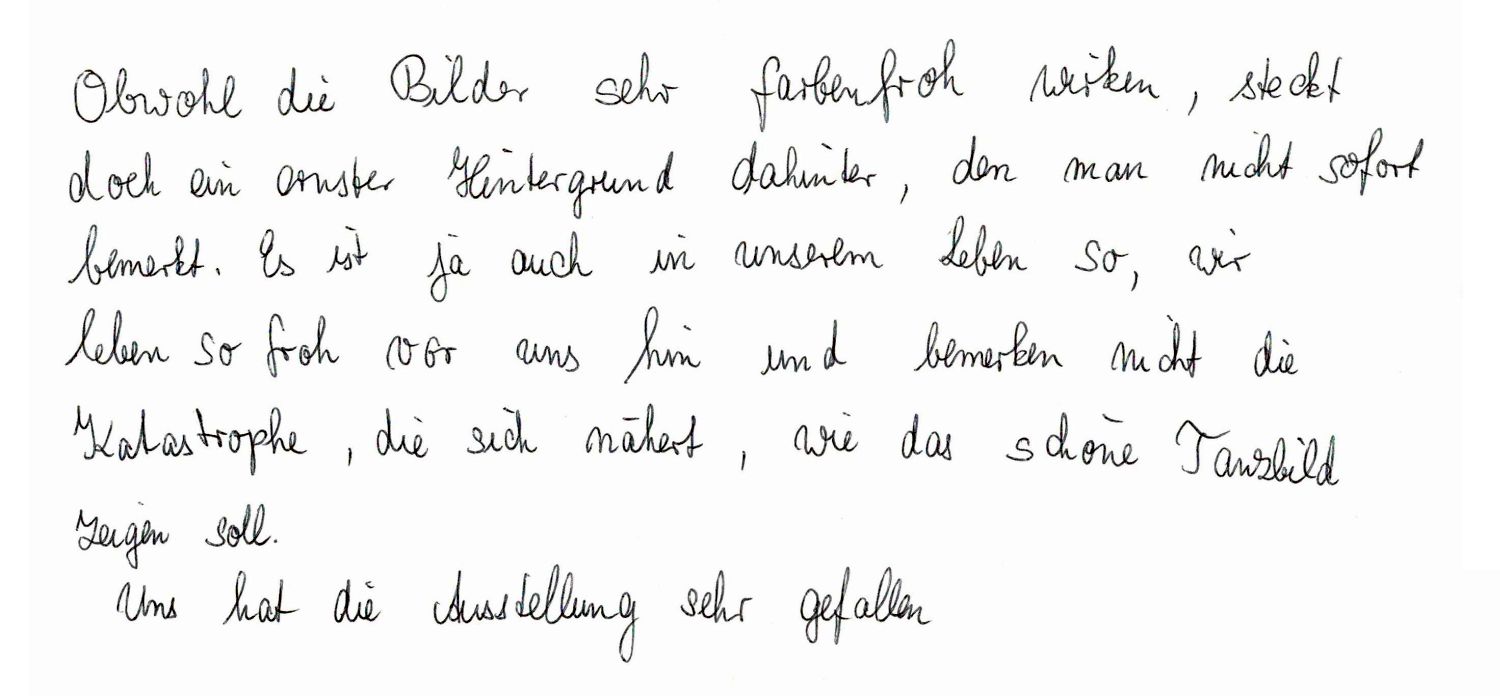 Obwohl die Bilder sehr farbenfroh wirken, steckt
doch ein ernster Hintergrund dahinter, den man nicht sofort
bemerkt. Es ist ja auch in unserem Leben so, wir
leben so froh vor uns hin und bemerken nicht die
Katastrophe, die sich nähert, wie das schöne Tanzbild
zeigen soll.
Uns hat die Ausstellung sehr gefallen